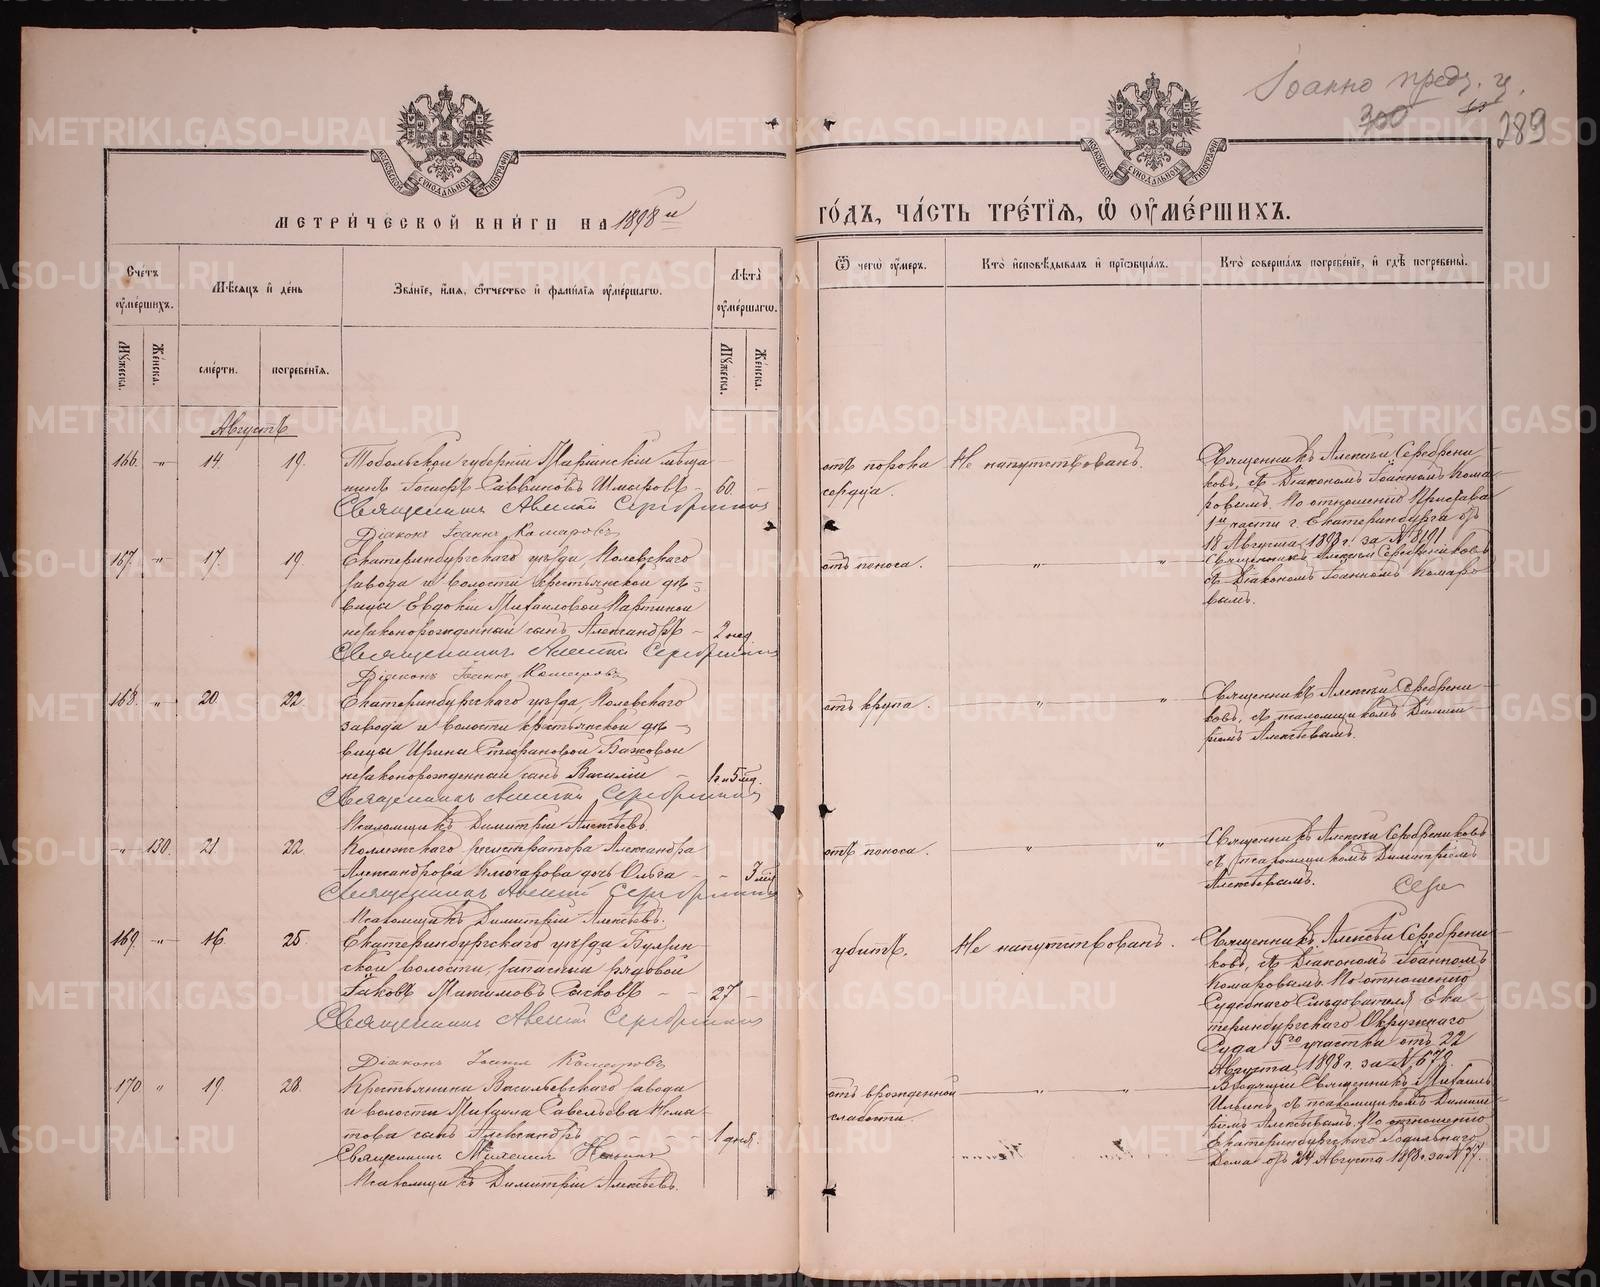 Іоанно предт. ц.
300
289
МЕТРИЧЕСКОЙ КНИГИ НА 1898 й
ГОДЪ, ЧАСТЬ ТРЕТІЯ, Ѿ ОУМЕРШИХЪ.
МОСКОВСКОЙ СѴНОДАЛЬНОЙ ТИПОГРАФІИ
МОСКОВСКОЙ СѴНОДАЛЬНОЙ ТИПОГРАФІИ
Счетъ оумершихъ.
Мѣсяцъ и день
Званіе, имя, отчество и фамилія оумершагѡ.
Лѣта оумершагѡ.
Ѿ чегѡ оумеръ.
Кто исповѣдывалъ и пріобщалъ.
Кто совершалъ погребеніе, и гдѣ погребены.
Мужеска.
Женска.
смерти.
погребенія.
Мужеска.
Женска.
Августъ
166. " 14. 19.
Тобольской губерніи
нинъ Іосифъ Саввиновъ 60.
Священникъ Алексій Серебренниковъ
Діаконъ Іоаннъ Комаровъ
отъ порока
сердца.
Не напутствованъ.
Священникъ Алексѣй Серебрени
ковъ, съ Діакономъ Іоанномъ Кома
ровымъ. По отношенію Пристава
1й части г. Екатеринбурга отъ
18 Августа 1898 г. за №
167. " 17. 19
Екатеринбургскаго уѣзда, Полевскаго
завода и волости крестьянской дѣ-
вицы Евдокіи Михаиловой
незаконорожденный сынъ Александръ 2 нед.
Священникъ Алексій Серебренниковъ
Діаконъ Іоаннъ Комаровъ
отъ поноса. " "
Священникъ Алексѣй Серебрениковъ
съ Діакономъ Іоанномъ Комаро
вымъ.
168. " 20. 22.
Екатеринбургскаго уѣзда, Полевскаго
завода и волости крестьянской дѣ-
вицы Ирины Стефановой Бажовой
незаконорожденный сынъ Василій 1 г. и 5 мѣс.
Священникъ Алексій Серебренниковъ
Псаломщикъ Димитрій Алексѣевъ.
отъ крупа. " "
Священникъ Алексѣй Серебрени
ковъ, съ псаломщикомъ Димит
ріемъ Алексѣевымъ.
" 150. 21 22.
Коллежскаго регистратора Александра
Александрова Ключарова дочь Ольга 3 мѣс.
Священникъ Алексій Серебренниковъ
Псаломщикъ Димитрій Алексѣевъ.
отъ поноса. " "
Священникъ Алексѣй Серебрениковъ
съ псаломщикомъ Димитріемъ
Алексѣевымъ.
169. " 16. 25.
Екатеринбургскаго уѣзда
ской волости, запасный рядовой
Іаковъ Максимовъ 27
Священникъ Алексій Серебренниковъ
Діаконъ Іоаннъ Комаровъ
убитъ.
Не напутствованъ.
Священникъ Алексѣй Серебрени
ковъ, съ Діакономъ Іоанномъ
Комаровымъ. По отношенію
Судебнаго Слѣдователя Ека
теринбургскаго Окружнаго
Суда 5го участка отъ 22
Августа 1898 г. за № 679.
170 " 19. 28.
Крестьянина Васильевскаго завода
и волости Михаила Савельева
сынъ Александръ 1 дня.
Священникъ Михаилъ
Псаломщикъ Димитрій Алексѣевъ.
отъ врожденной
слабости. " "
Священникъ Михаилъ
Ильинъ, съ псаломщикомъ Димит
ріемъ Алексѣевымъ. По отношенію
Екатеринбургскаго Родильнаго
Дома отъ 24 Августа 1898 г. за № 77.
METRIKI.GASO-URAL.RU